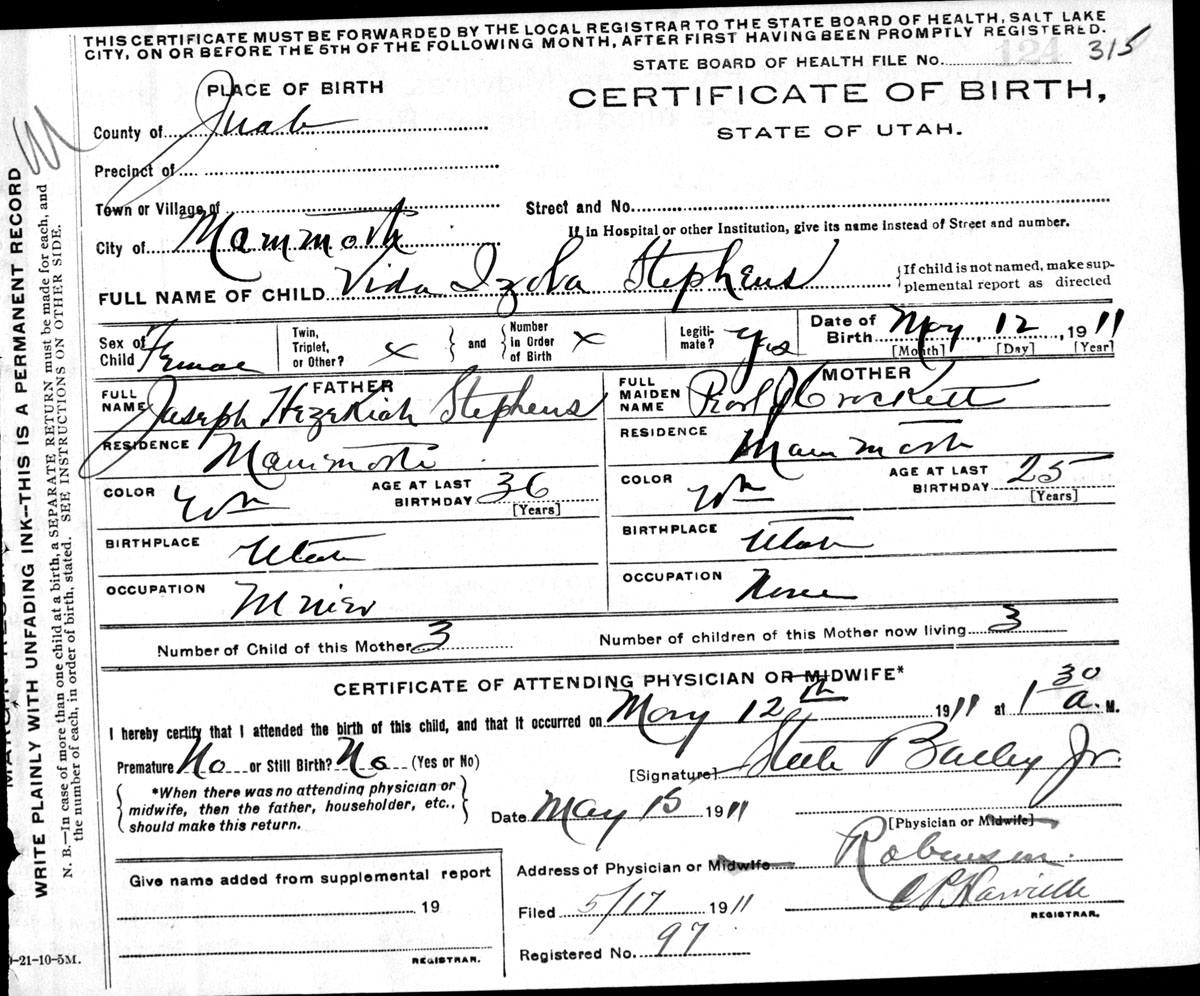 THIS CERTIFICATE MUST BE FORWARDED BY THE LOCAL REGISTRAR TO THE STATE BOARD OF HEALTH, SALT LAKE
CITY, ON OR BEFORE THE 5TH OF THE FOLLOWING MONTH, AFTER FIRST HAVING BEEN PROMPTLY REGISTERED.
STATE BOARD OF HEALTH FILE No. 124 315
PLACE OF BIRTH
CERTIFICATE OF BIRTH,
STATE OF UTAH.
County of Juab
Precinct of
Town or Village of
Street and No.
City of Mammoth
If in Hospital or other Institution, give its name instead of Street and number.
FULL NAME OF CHILD Vida Izola Stephens
{If child is not named, make sup-
plemental report as directed
Sex of Child Female
Twin, Triplet, or Other? x
{ and } Number in Order of Birth x
Legiti-mate? yes
Date of Birth May 12, 1911
[Month] [Day] [Year]
FATHER
FULL NAME Joseph Hezekiah Stephens
RESIDENCE Mammoth
COLOR Wh AGE AT LAST BIRTHDAY 36
[Years]
BIRTHPLACE Utah
OCCUPATION Miner
MOTHER
FULL MAIDEN NAME Pearl J Crockett
RESIDENCE Mammoth
COLOR Wh AGE AT LAST BIRTHDAY 25
[Years]
BIRTHPLACE Utah
OCCUPATION None
Number of Child of this Mother 3 Number of children of this Mother now living 3
CERTIFICATE OF ATTENDING PHYSICIAN OR MIDWIFE*
I hereby certify that I attended the birth of this child, and that it occurred on May 12th 1911 at 1 30 a. M.
Premature No or Still Birth? No (Yes or No)
[Signature] Steele Bailey Jr.
{ *When there was no attending physician or
midwife, then the father, householder, etc.,
should make this return. }
Date May 15 1911
[Physician or Midwife]
Address of Physician or Midwife Robinson.
Give name added from supplemental report
19
REGISTRAR.
Filed 5/17 1911
REGISTRAR.
Registered No. 97
WRITE PLAINLY WITH UNFADING INK—THIS IS A PERMANENT RECORD
N. B.—In case of more than one child at a birth, a SEPARATE RETURN must be made for each, and
the number of each, in order of birth, stated. SEE INSTRUCTIONS ON OTHER SIDE.
-21-10-5M.